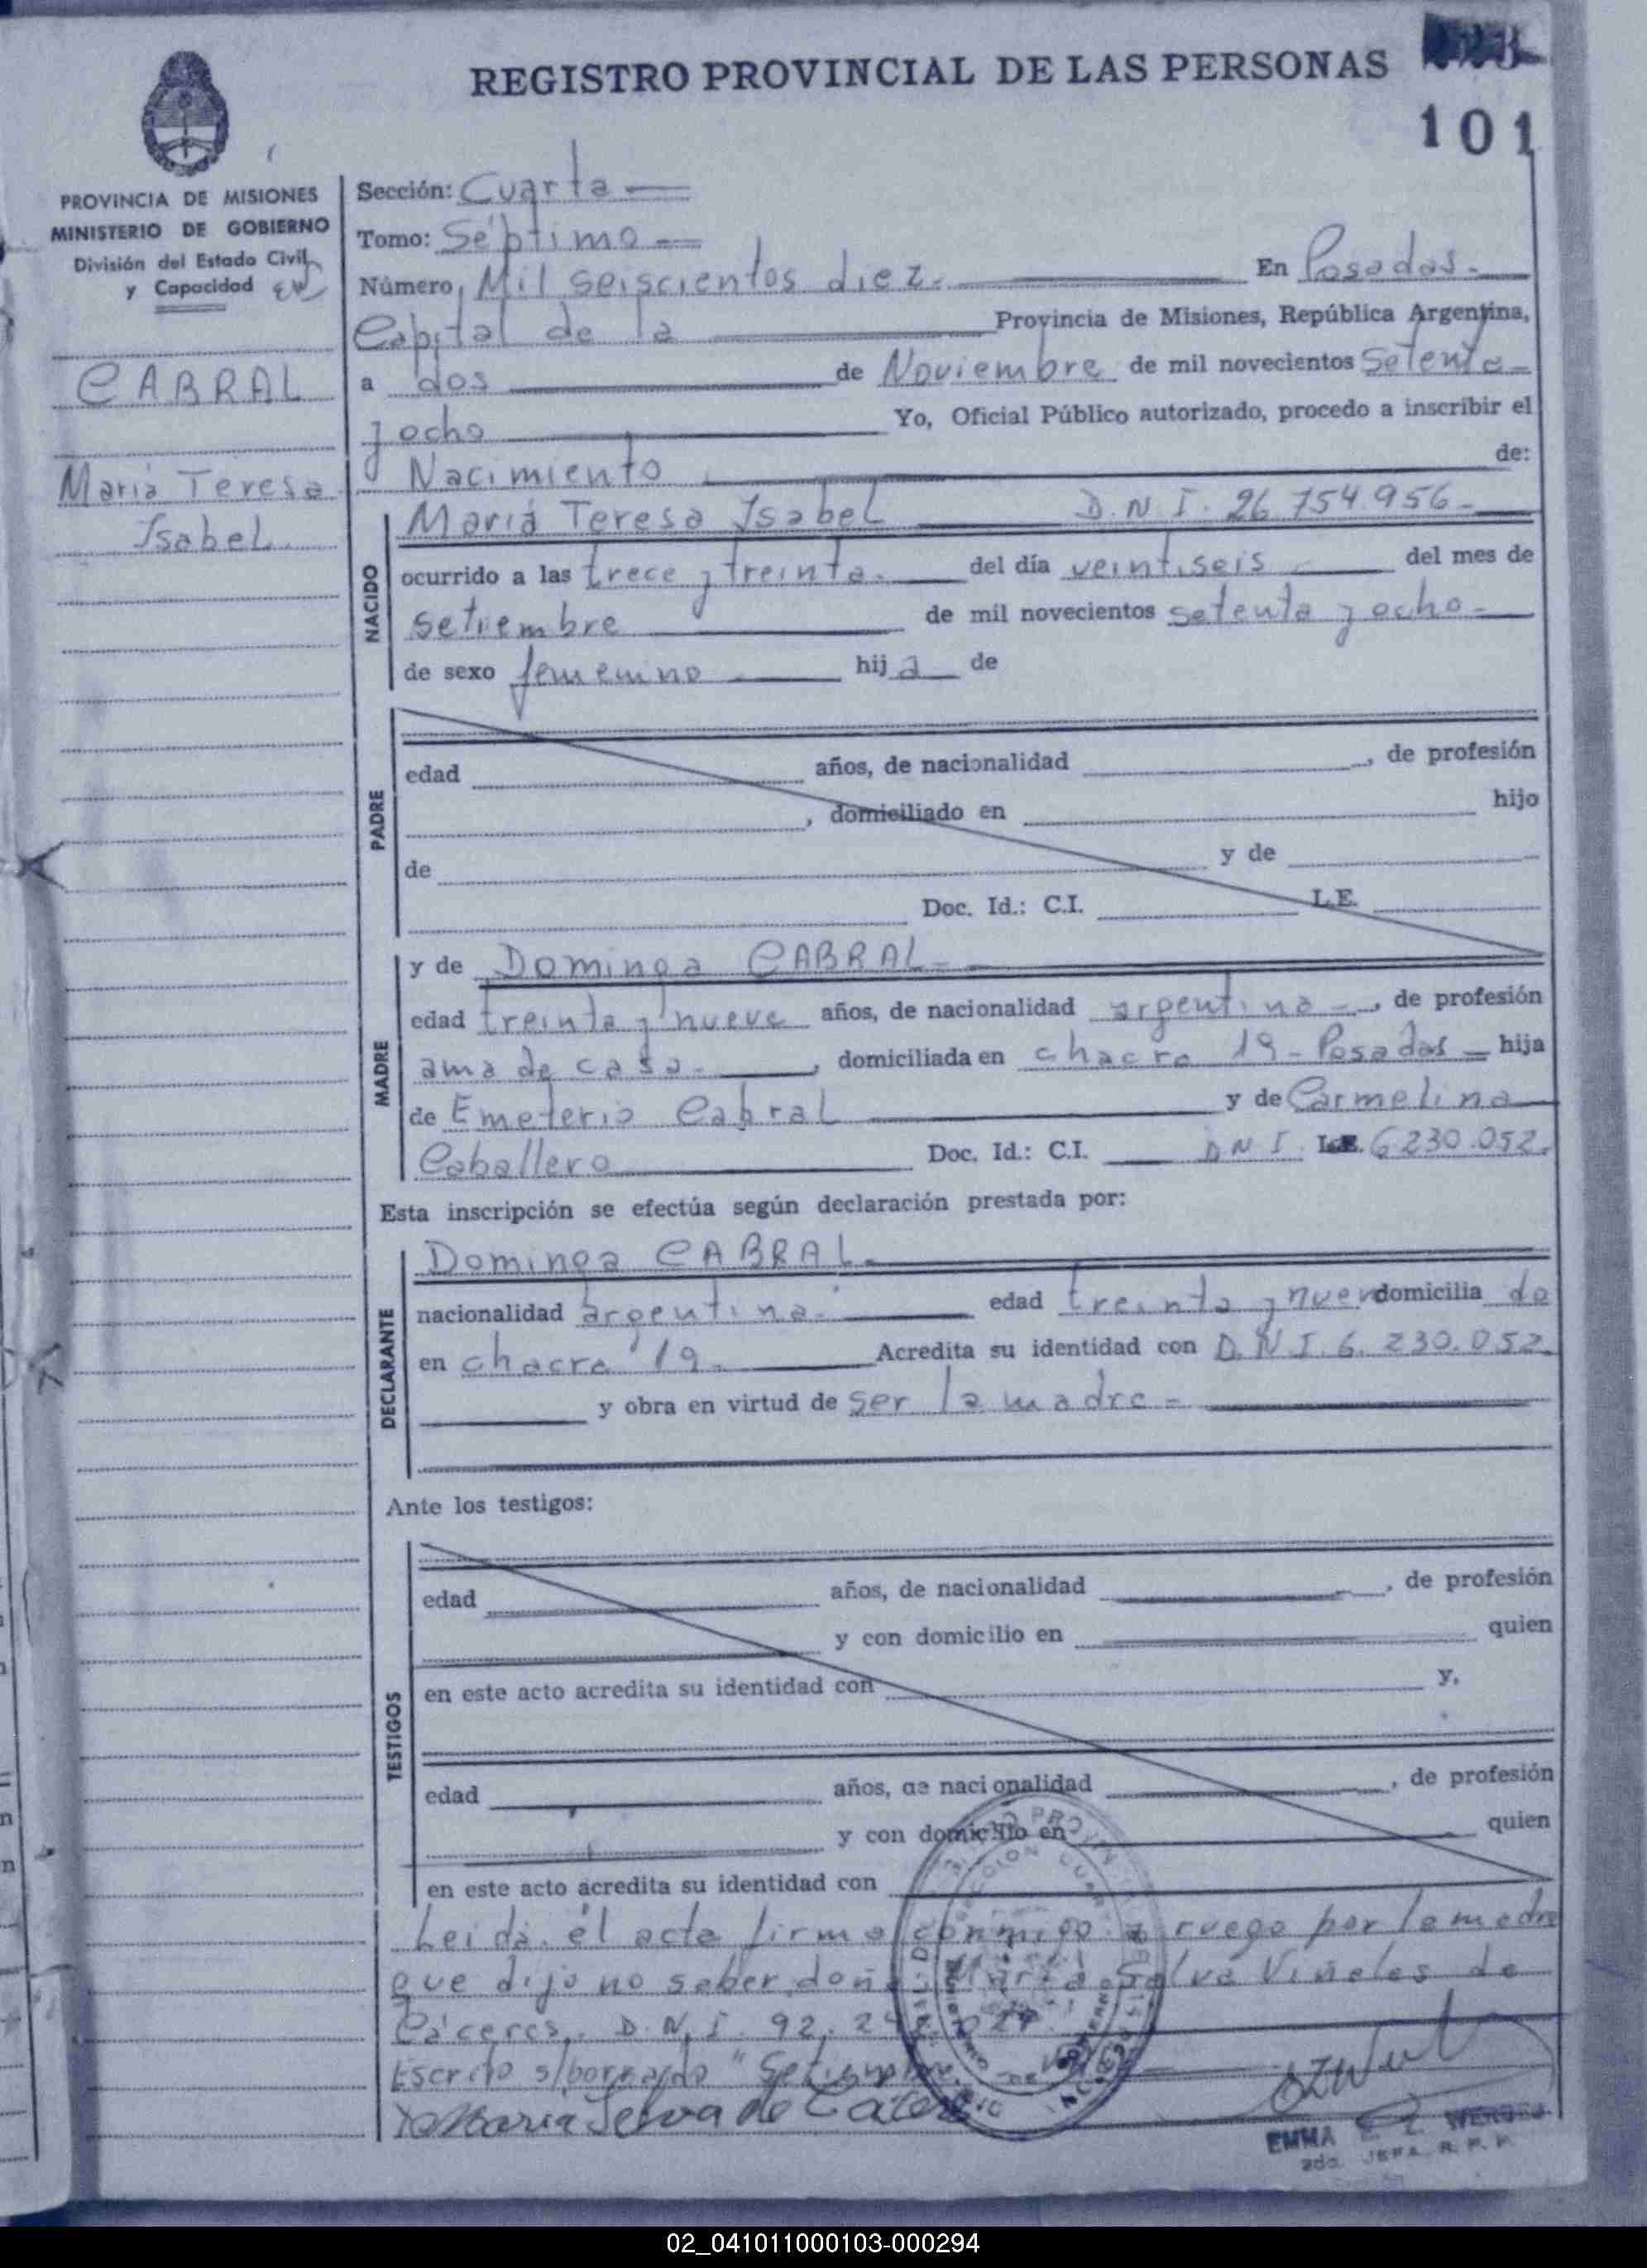 REGISTRO PROVINCIAL DE LAS PERSONAS
101
PROVINCIA DE MISIONES
MINISTERIO DE GOBIERNO
División del Estado Civil
y Capacidad
CABRAL
Maria Teresa
Isabel
Sección: Cuarta
Tomo: Séptimo
Número Mil seiscientos diez. En Posadas.
Capital de la Provincia de Misiones, República Argentina,
a dos de Noviembre de mil novecientos Setenta
y ocho Yo, Oficial Público autorizado, procedo a inscribir el
Nacimiento de:
NACIDO
Maria Teresa Isabel D.N.I. 26.754.956
ocurrido a las trece y treinta del día veintiseis del mes de
setiembre de mil novecientos setenta y ocho
de sexo femenino hija de
PADRE
edad años, de nacionalidad , de profesión
, domiciliado en hijo
de y de
Doc. Id.: C.I. L.E.
MADRE
y de Dominga CABRAL
edad treinta y nueve años, de nacionalidad argentina , de profesión
ama de casa , domiciliada en chacra 19 - Posadas hija
de Emeterio Cabral y de Carmelina
Caballero Doc. Id.: C.I. D N I. L.E. 6.230.052.
Esta inscripción se efectúa según declaración prestada por:
DECLARANTE
Dominga CABRAL
nacionalidad argentina edad treinta y nueve domicilia da
en chacra 19 Acredita su identidad con D.N.I. 6.230.052.
y obra en virtud de ser la madre
Ante los testigos:
TESTIGOS
edad años, de nacionalidad , de profesión
y con domicilio en quien
en este acto acredita su identidad con y,
edad años, de nacionalidad , de profesión
y con domicilio en quien
en este acto acredita su identidad con
Leida el acta firma conmigo a ruego por la madre
que dijo no saber, doña Maria Selva Viñeles de
Cáceres. D.N.I. 92.
Escrito s/borrado "Setiembre
Maria Selva de
EMMA
2da. JEFA R. P. P.
02_041011000103-000294